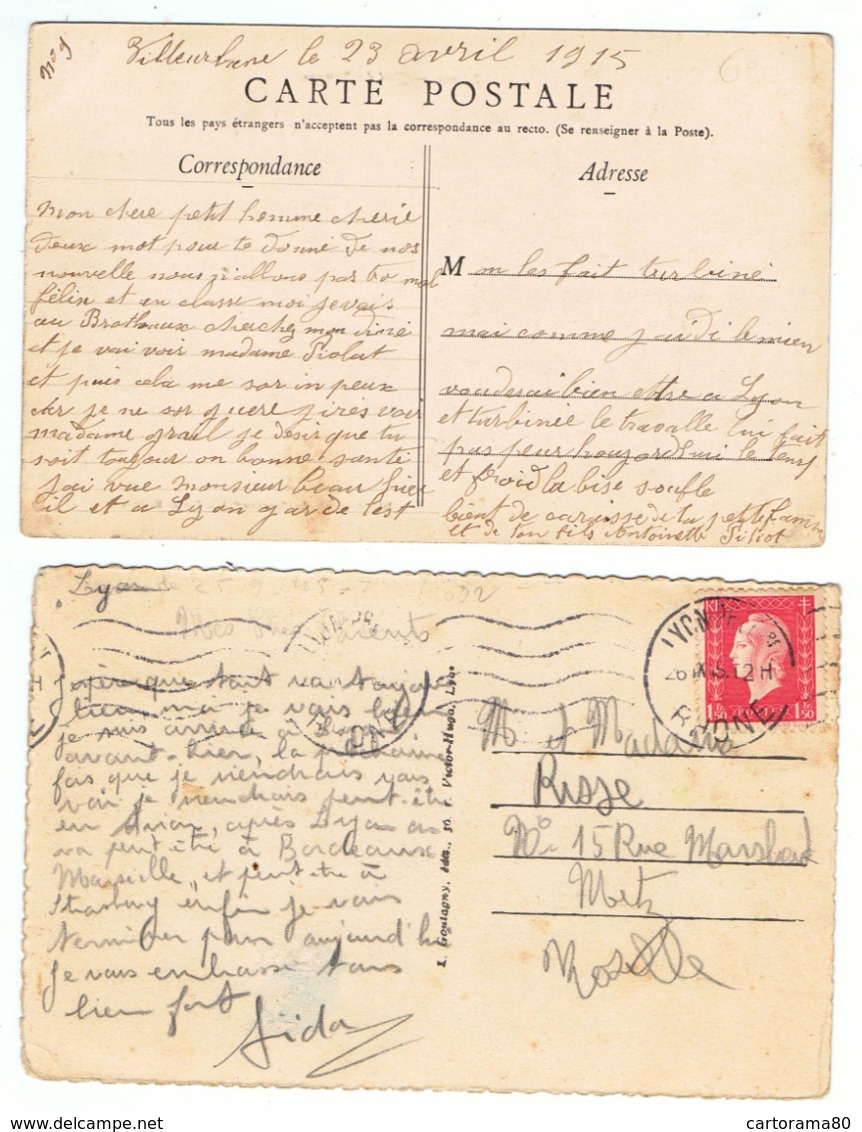 Villeurbane le 23 avril 1915
CARTE POSTALE
Tous les pays étrangers n'acceptent pas la correspondance au recto. (Se renseigner à la Poste).
Correspondance
Adresse
mon chere petit homme cherie
deux mot pour te donné de nos
nouvelle nous allons pas tro mal
félix et en classe moi je vais
au cherchez mon diné
et je vai voir madame Piolat
et puis cela me sor in peux
car je ne sor guere j'irés voir
madame je desir que tu
soit toujour on bonne santé
j'ai vue monsieur beau frere
il et a Lyon garde l'est
M on les fait turbiné
mai comme j'ai di le mien
voudrai bien ettre a Lyon
et turbinée le travalle lui fait
pas peur le tens
et froid la bise soufle
bient de de ta petite famme
et de ton fils Antoinette Piliot
Lyon
Mes Chers Parents
j'espère que tout va toujours
bien moi je vais bien
je suis arrivé à
avant-hier, la prochaine
fois que je viendrais vous
voir je viendrais peut-être
en avion, après Lyon on
va peut être à Bordeaux
Marseille, et peut-être à
Strasbourg enfin je vais
terminer pour aujourd'hui
je vous embrasse tous
bien fort
E. Goutagny, Victor-Hugo, Lyon
LYON
RHONE
26 IX 45 12H
RF
1,50 Fr
1,50 Fr
M et Madame
Risse
No 15 Rue
Metz
Moselle
cartorama80